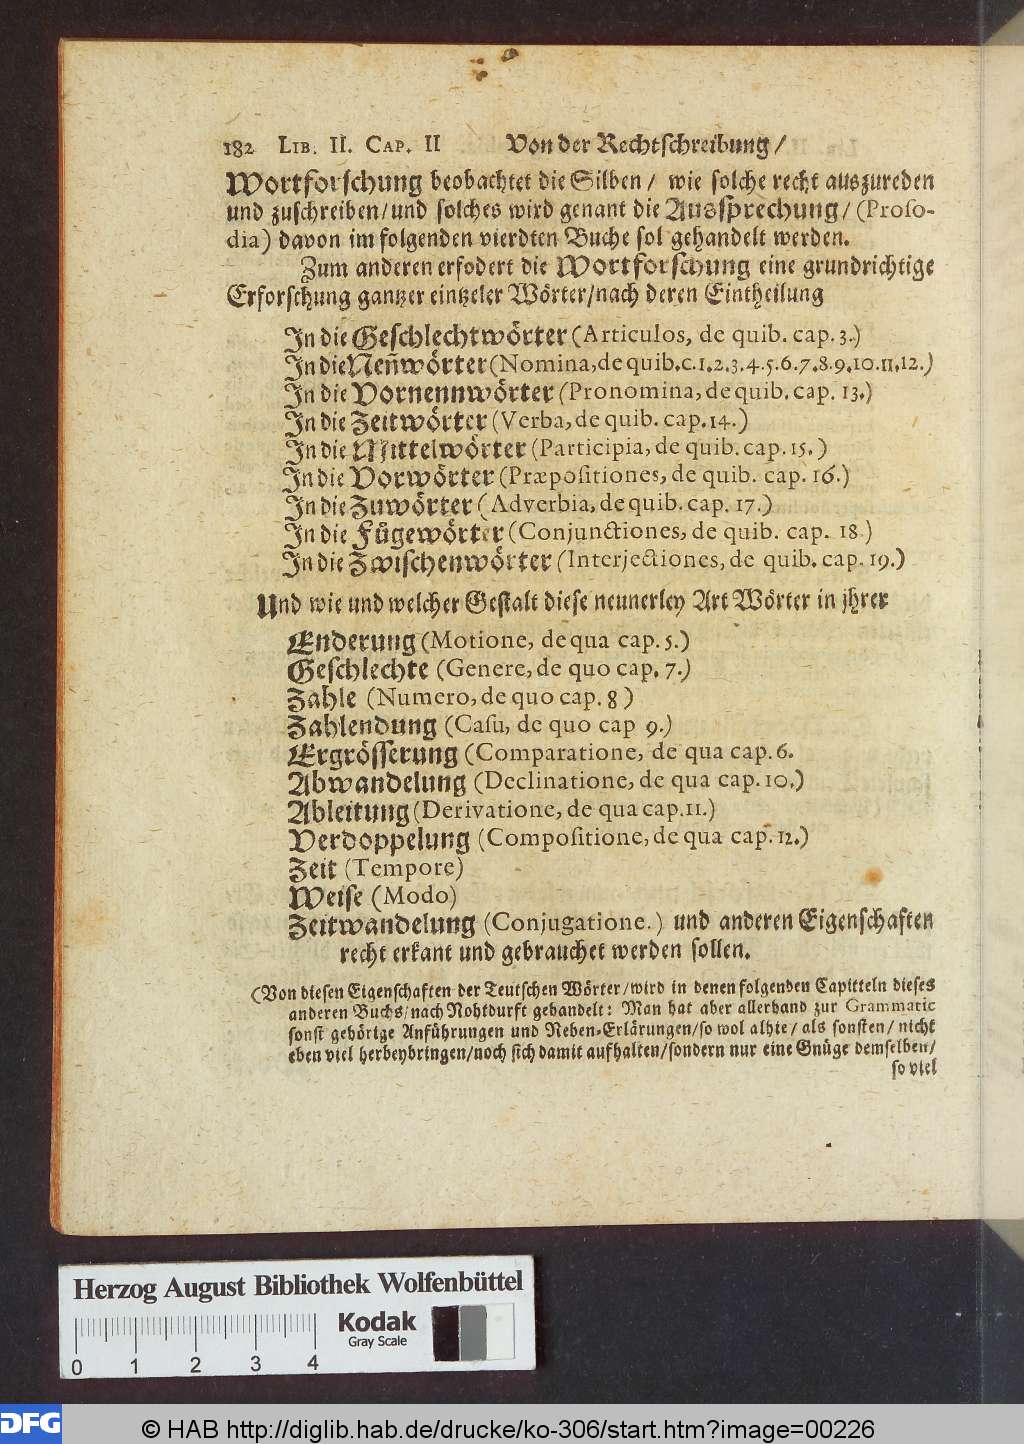 182 LIB. II. CAP. II Von der Rechtschreibung /
Wortforschung beobachtet die Silben / wie solche recht auszureden
und zuschreiben / und solches wird genant die Aussprechung / (Proso-
dia) davon im folgenden vierdten Buche sol gehandelt werden.
Zum anderen erfodert die Wortforschung eine grundrichtige
Erforschung gantzer eintzeler Wörter / nach deren Eintheilung
In die Geschlechtwörter (Articulos, de quib. cap. 3.)
In die Neñwörter (Nomina, de quib. c. 1. 2. 3. 4. 5. 6. 7. 8. 9. 10. 11. 12.)
In die Vornennwörter (Pronomina, de quib. cap. 13.)
In die Zeitwörter (Verba, de quib. cap. 14.)
In die Mittelwörter (Participia, de quib. cap. 15.)
In die Vorwörter (Præpositiones, de quib. cap. 16.)
In die Zuwörter (Adverbia, de quib. cap. 17.)
In die Fügewörter (Conjunctiones, de quib. cap. 18.)
In die Zwischenwörter (Interjectiones, de quib. cap. 19.)
Und wie und welcher Gestalt diese neunerley Art Wörter in jhrer
Enderung (Motione, de qua cap. 5.)
Geschlechte (Genere, de quo cap. 7.)
Zahle (Numero, de quo cap. 8)
Zahlendung (Casu, de quo cap 9.)
Ergrösserung (Comparatione, de qua cap. 6.
Abwandelung (Declinatione, de qua cap. 10.)
Ableitung (Derivatione, de qua cap. 11.)
Verdoppelung (Compositione, de qua cap. 12.)
Zeit (Tempore)
Weise (Modo)
Zeitwandelung (Conjugatione.) und anderen Eigenschaften
recht erkant und gebrauchet werden sollen.
(Von diesen Eigenschaften der Teutschen Wörter / wird in denen folgenden Capitteln dieses
anderen Buchs / nach Nohtdurft gehandelt: Man hat aber allerhand zur Grammatic
sonst gehörige Anführungen und Neben-Erlärungen / so wol alhie / als sonsten / nicht
eben viel herbeybringen / noch sich damit aufhalten / sondern nur eine Gnüge demselben /
so viel
Herzog August Bibliothek Wolfenbüttel
Kodak
Gray Scale
0 1 2 3 4
DFG
© HAB http://diglib.hab.de/drucke/ko-306/start.htm?image=00226